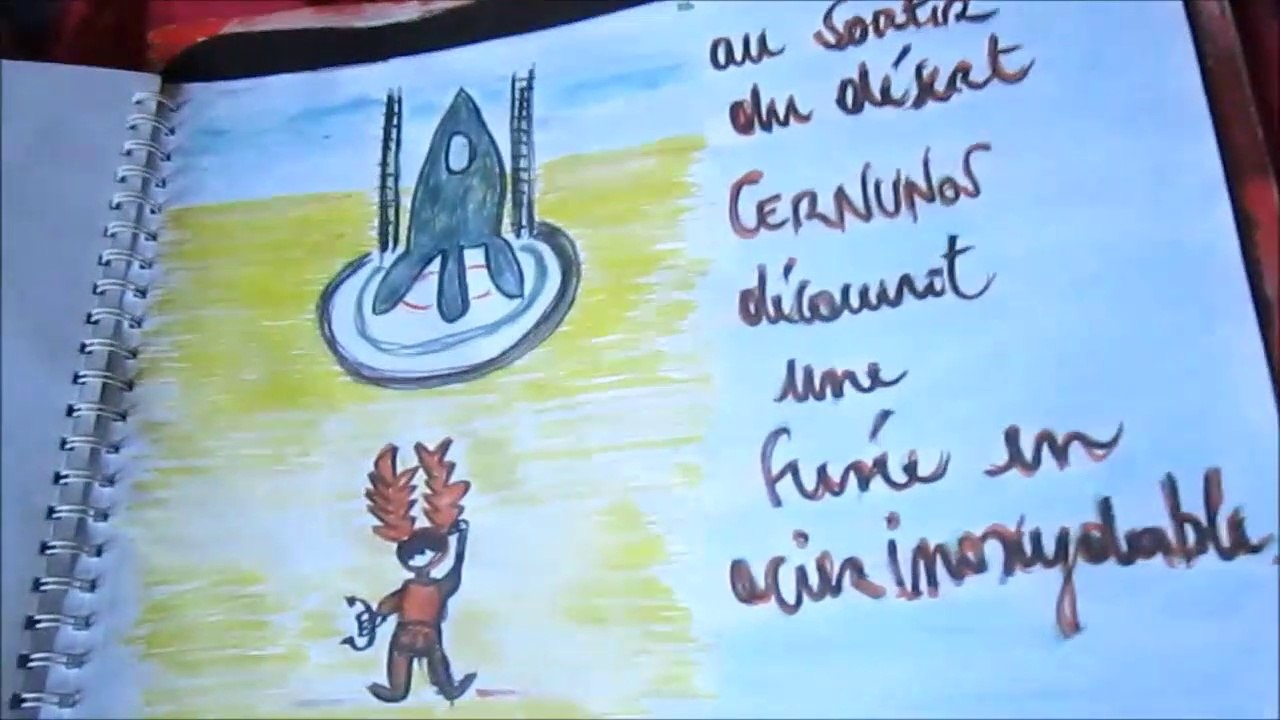 au sortir
du désert
CERNUNOS
découvrit
une
Fusée en
acier inoxydable